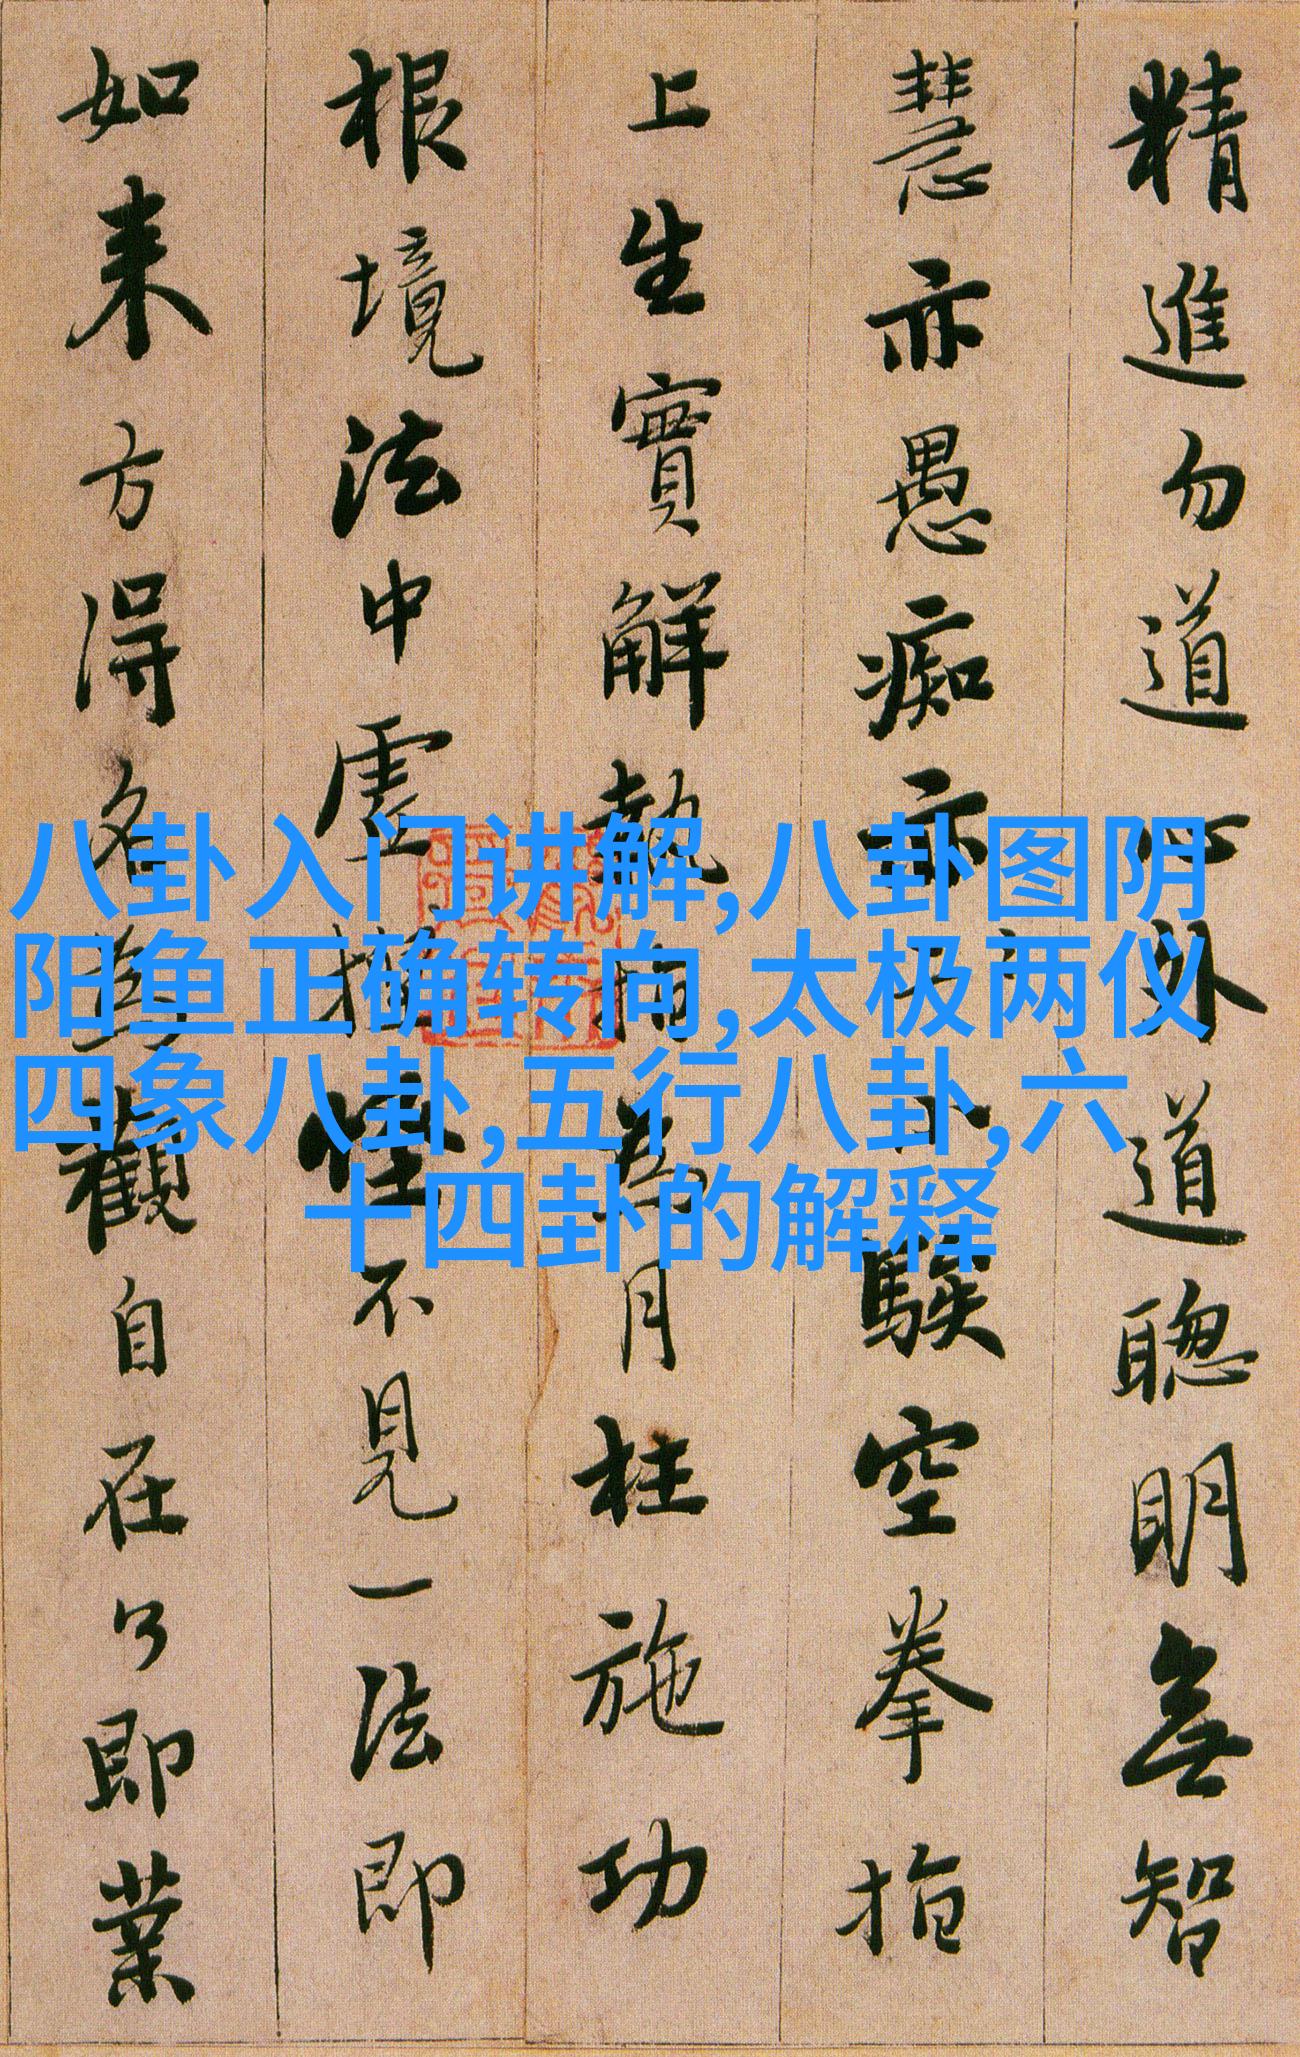 精進勿道心外道聰明無智
慧亦愚痴亦小騃空拳指
上生實解執指為月枉施功
根境法中虛捏怪不見一法即
如来方得名為觀自在了即業
八卦入门讲解,八卦图阴
阳鱼正确转向,太极两仪
四象八卦,五行八卦,六
十四卦的解释